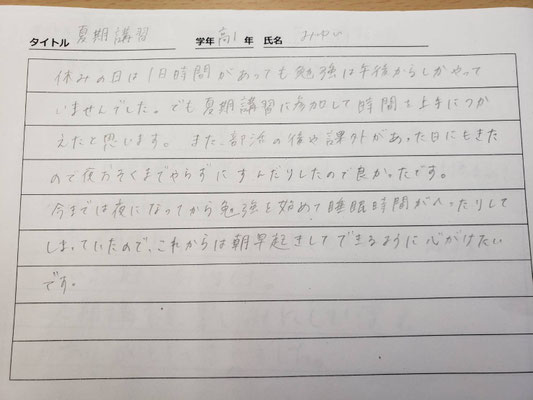 タイトル 夏期講習 学年 高1 年 氏名 みゆい
休みの日は1日時間があっても勉強は午後からしかやって
いませんでした。でも夏期講習に参加して時間を上手につか
えたと思います。また、部活の後や課外があった日にもきた
ので夜おそくまでやらずにすんだりしたので良かったです。
今までは夜になってから勉強を始めて睡眠時間がへったりして
しまっていたので、これからは朝早起きしてできるように心がけたい
です。